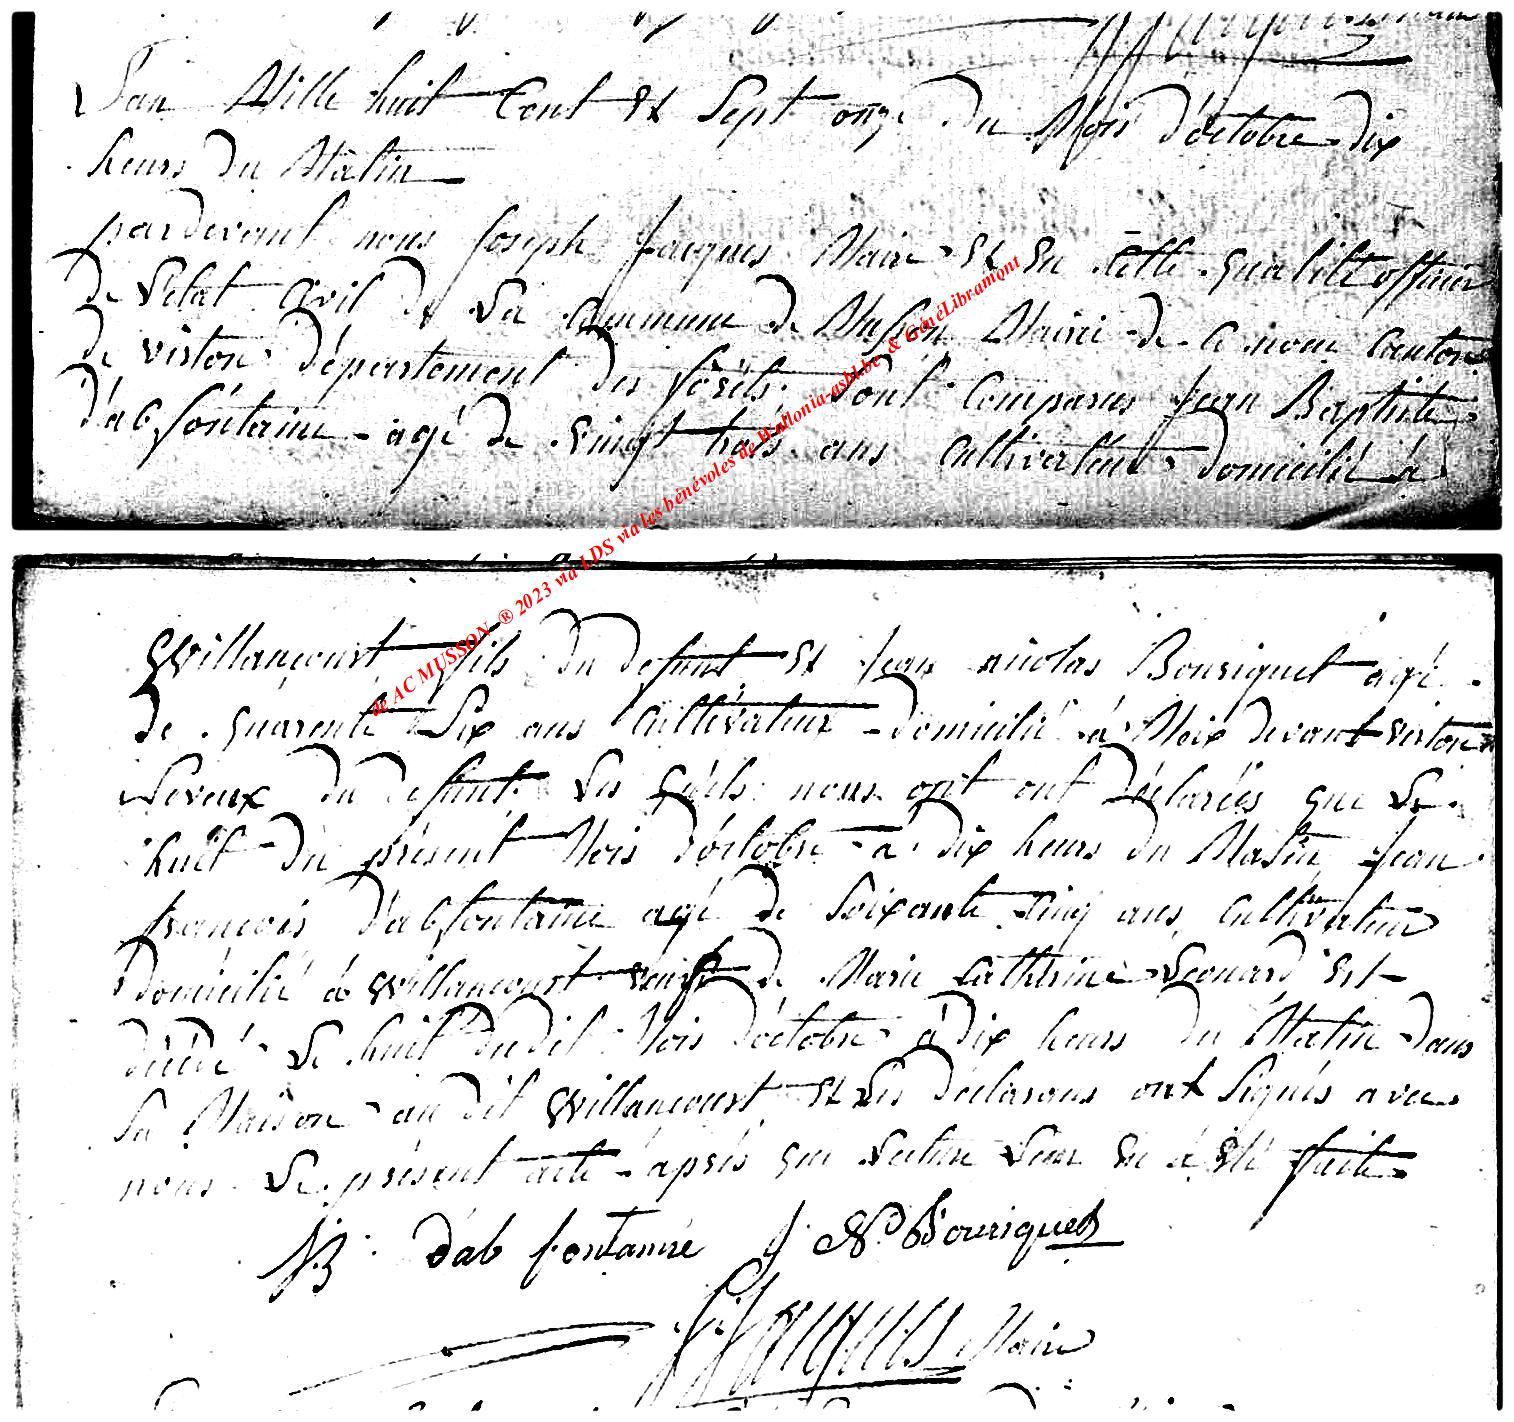 L'an Mille huit Cent Et Sept onze du Mois d'octobre dix
heurs du Matin
pardevant nous Joseph Jacques Maire Et En Cette qualité officier
de L'etat Civil de La Commune de Musson Mairie de Ce nom Canton
de virton département des forêts. Sont Comparus Jean Baptiste
d'abfontaine agé de vingt trois ans Cultivateur domicilié à
Willancourt fils du defunt Et Jean nicolas Bouriquet agé
de quarente Six ans Cultivateur domicilié à Meix devant virton
Neveux du defunt. Les quels nous ont ont déclarés que Le
huit du présent Mois d'octobre à dix heurs du Matin Jean
françois d'abfontaine agé de Soixante Cinq ans Cultivateur
domicilié à Willancourt veuf de Marie Catherine Léonard Est
décédé Le huit du dit Mois d'octobre à dix heurs du Matin dans
Sa Maison au dit Willancourt Et Les déclarans ont Signés avec
nous Le présent acte après que Lecture Leur En à Eté faite
JB. d'ab fontaine J N. Bouriquet
J. Jacques Maire
de AC MUSSON ® 2023 via LDS via les bénévoles de Wallonia-asbl.be & GénéLibramont